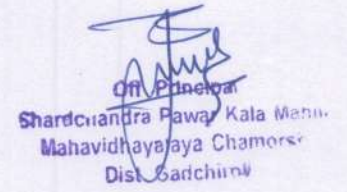 Off Principal
Shardchandra Pawar Kala Mahn.
Mahavidhayalaya Chamorsi
Dist Gadchiroli